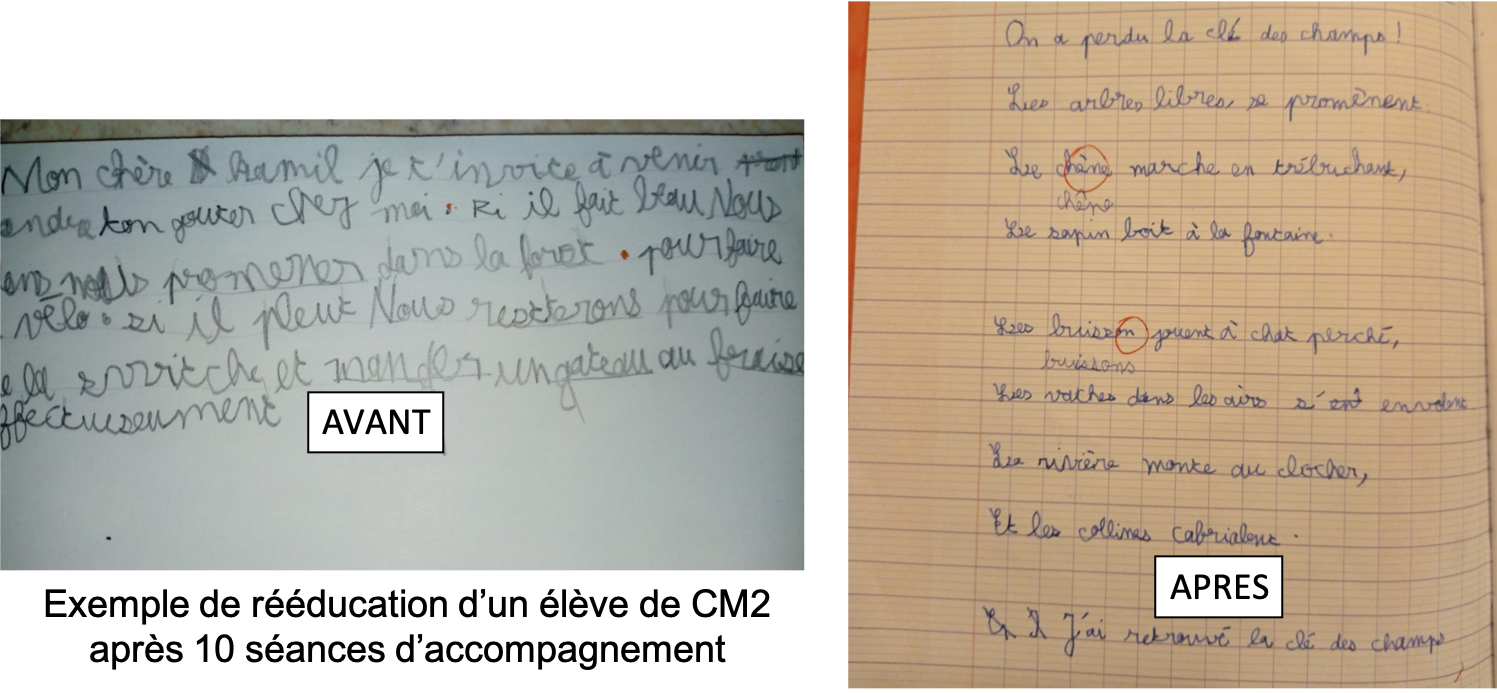 Mon chère kamil je t'invice à venir
ton gouter chez moi. si il fait beau Nous
nous promener dans la foret. pour faire
vélo. si il pleut Nous resterons pour faire
la switche et manger un gateau au fraise
ffectueusement
AVANT
Exemple de rééducation d'un élève de CM2
après 10 séances d'accompagnement
On a perdu la clé des champs!
Les arbres, libres, se promènent.
Le chêne marche en trébuchant,
chêne
Le sapin boit à la fontaine.
Les buisson jouent à chat perché,
buissons
Les vaches dans les airs s' envolent
La rivière monte au clocher,
Et les collines cabrialent.
APRES
J'ai retrouvé la clé des champs